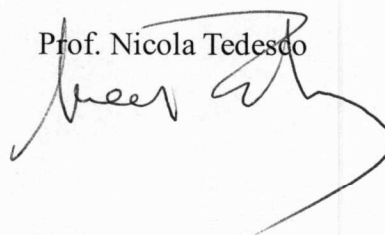 Prof. Nicola Tedesco